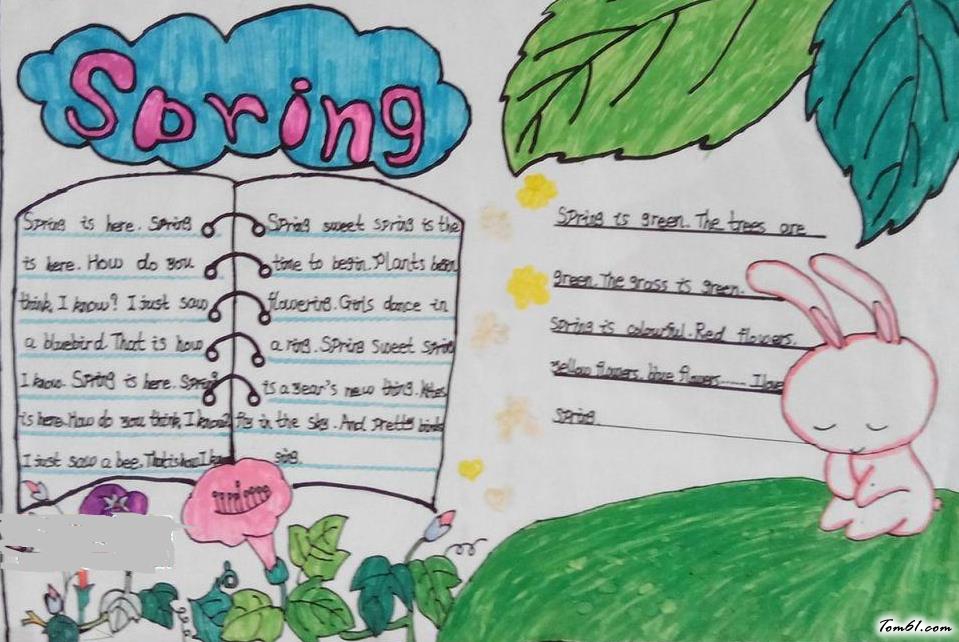 Spring
Spring is here. Spring
is here. How do you
think, I know? I just saw
a bluebird. That is how
I know. Spring is here. Spring
is here. How do you think, I know?
I just saw a bee. That is how I know
Spring sweet spring is the
time to begin. Plants begin
flowering. Girls dance in
a ring. Spring Sweet Spring
is a year's new thing. Kites
fly in the sky. And pretty birds
sing.
Spring is green. The trees are
green. The grass is green.
Spring is colourful. Red flowers.
yellow flowers. blue flowers...... I love
Spring.
Tom61.com